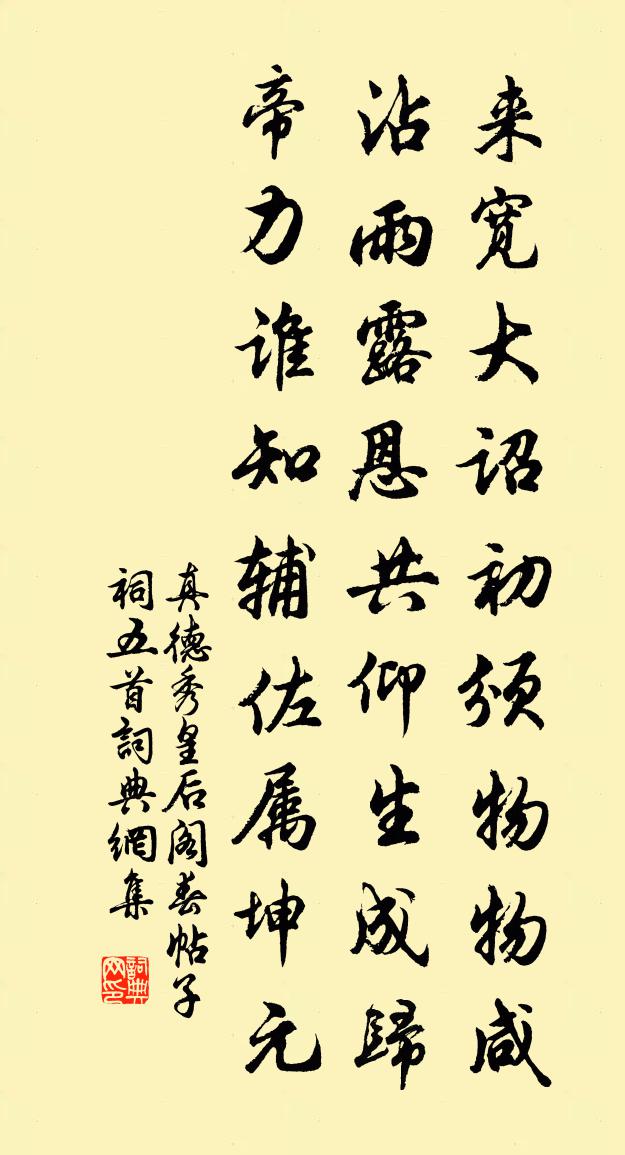 来宽大诏初颁物物咸
沾雨露恩共仰生成歸
帝力谁知辅佐属坤元
真德秀皇后阁春帖子
祠五首詞典網集
詞典網印